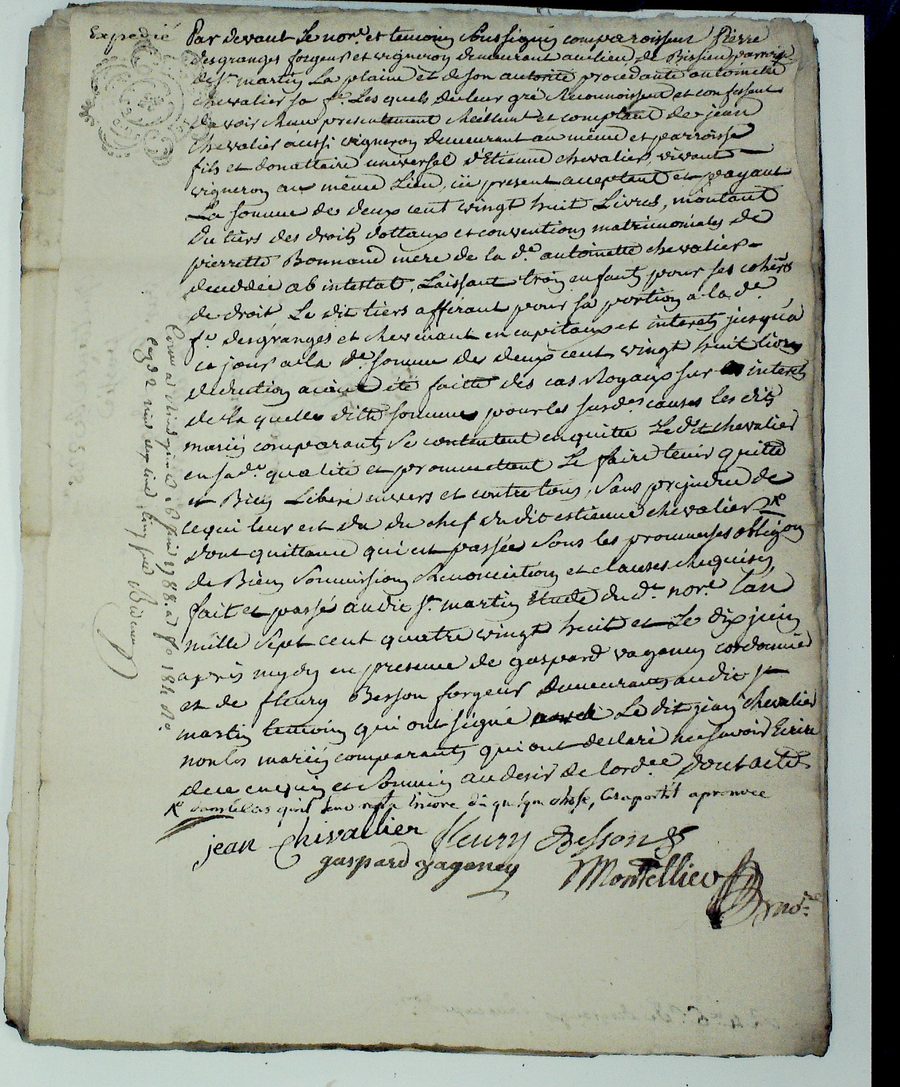 Expedié
Par devant Le nore et temoins soussignés comparoissent Pierre
desgranges forgeur et vigneron demeurant au lieu de Bissieu parroisse
de st martin La plaine et de son autorité procedante antoinette
chevalier sa fe. Lesquels de leur gré Reconnoissent et confessent
d'avoir Reçu presentement Reellemt et comptant de jean
chevalier aussi vigneron demeurant au même et parroisse
fils et donattaire universel d'Etienne chevalier, vivant
vigneron au même Lieu, ici present acceptant et payant
La somme de deux cent vingt huit Livres, montant
du tiers des droits dottaux et conventions matrimoniales de
pierrette Bonnand mere de la de. antoinette chevalier
decedée ab intestat, Laissant trois enfants pour ses cohers
de droit Le dit tiers afférant pour sa portion à la de.
fe desgranges et Revenant en capitaux et interets jusqu'à
ce jour à la de somme des deux cent vingt huit livres
deduction aiant été faitte des cas Royaux sur les interets
de la quelle ditte somme pour les susdes causes les dits
mariés comparants se contentent en quitte Le dit chevalier
en sa de. qualité et promettent Le faire tenir quitte
et Bien Liberé envers et contre tous, sans prejudice de
ce qui leur est du du chef du dit estienne chevalier Re
dont quittance qui est passée sous les promesses obligaon
de Biens soumissions Renonciations et clauses Requises,
fait et passé audit st. martin Etude du dt. nore. L'an
mille sept cent quatre vingt huit et Le dix juin
après mydy en presence de gaspard vaganey cordonnier
et de fleury Besson forgeur demeurants audit st
martin temoins qui ont signé avec Le dit jean chevalier
non les mariés comparants qui ont declaré ne savoir Ecrire
de ce enquis et sommés au desir de l'ordce Dont acte
Re dans le cas qu'il leur reste encore dû quelque chose, Ce apostil aprouvé
jean Chivallier fleury Besson
gaspard Vaganey Montellier nore
Con.lé à Rivedegier le 16 juin 1788. a fo 184 Ro
Reçu 2 livres sept sols cinq